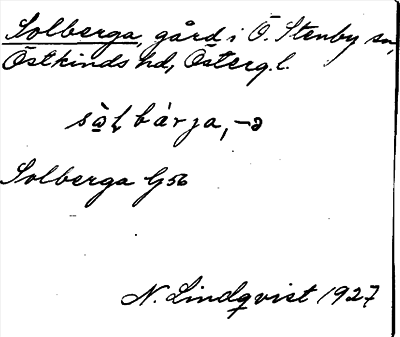 Solberga, gård i Ö. Stenby sn,
Östkinds hd, Österg. l.
sò̀lbárja, -ə
Solberga G 56
N. Lindqvist 1927